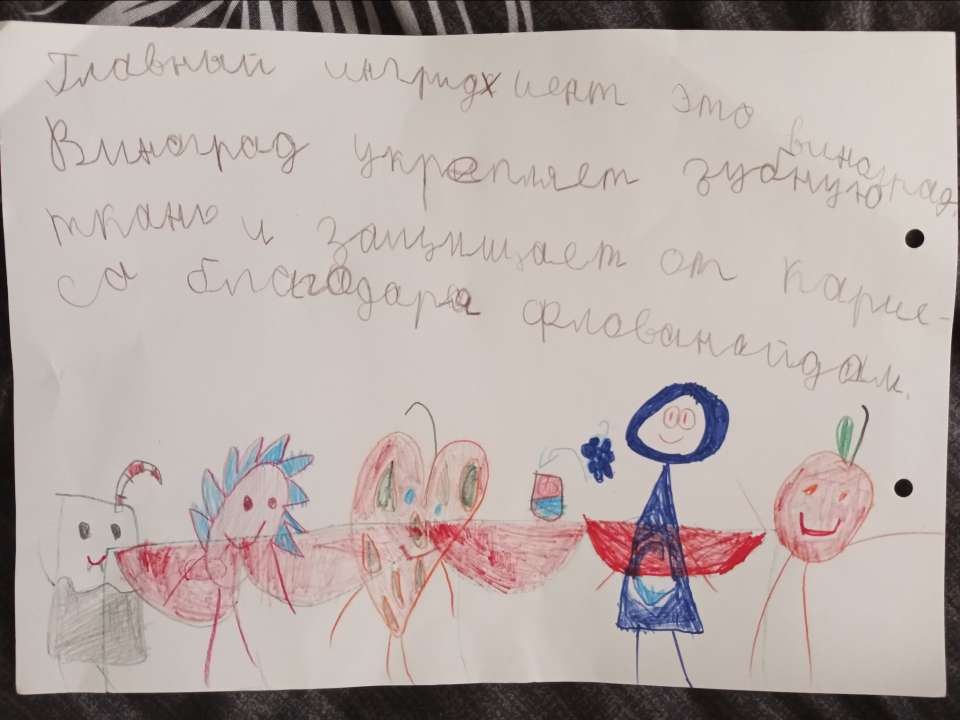 Главный ингридиент это виноград.
Виноград укрепляет зубную
ткань и защищает от карие-
са благодаря флованойдам.